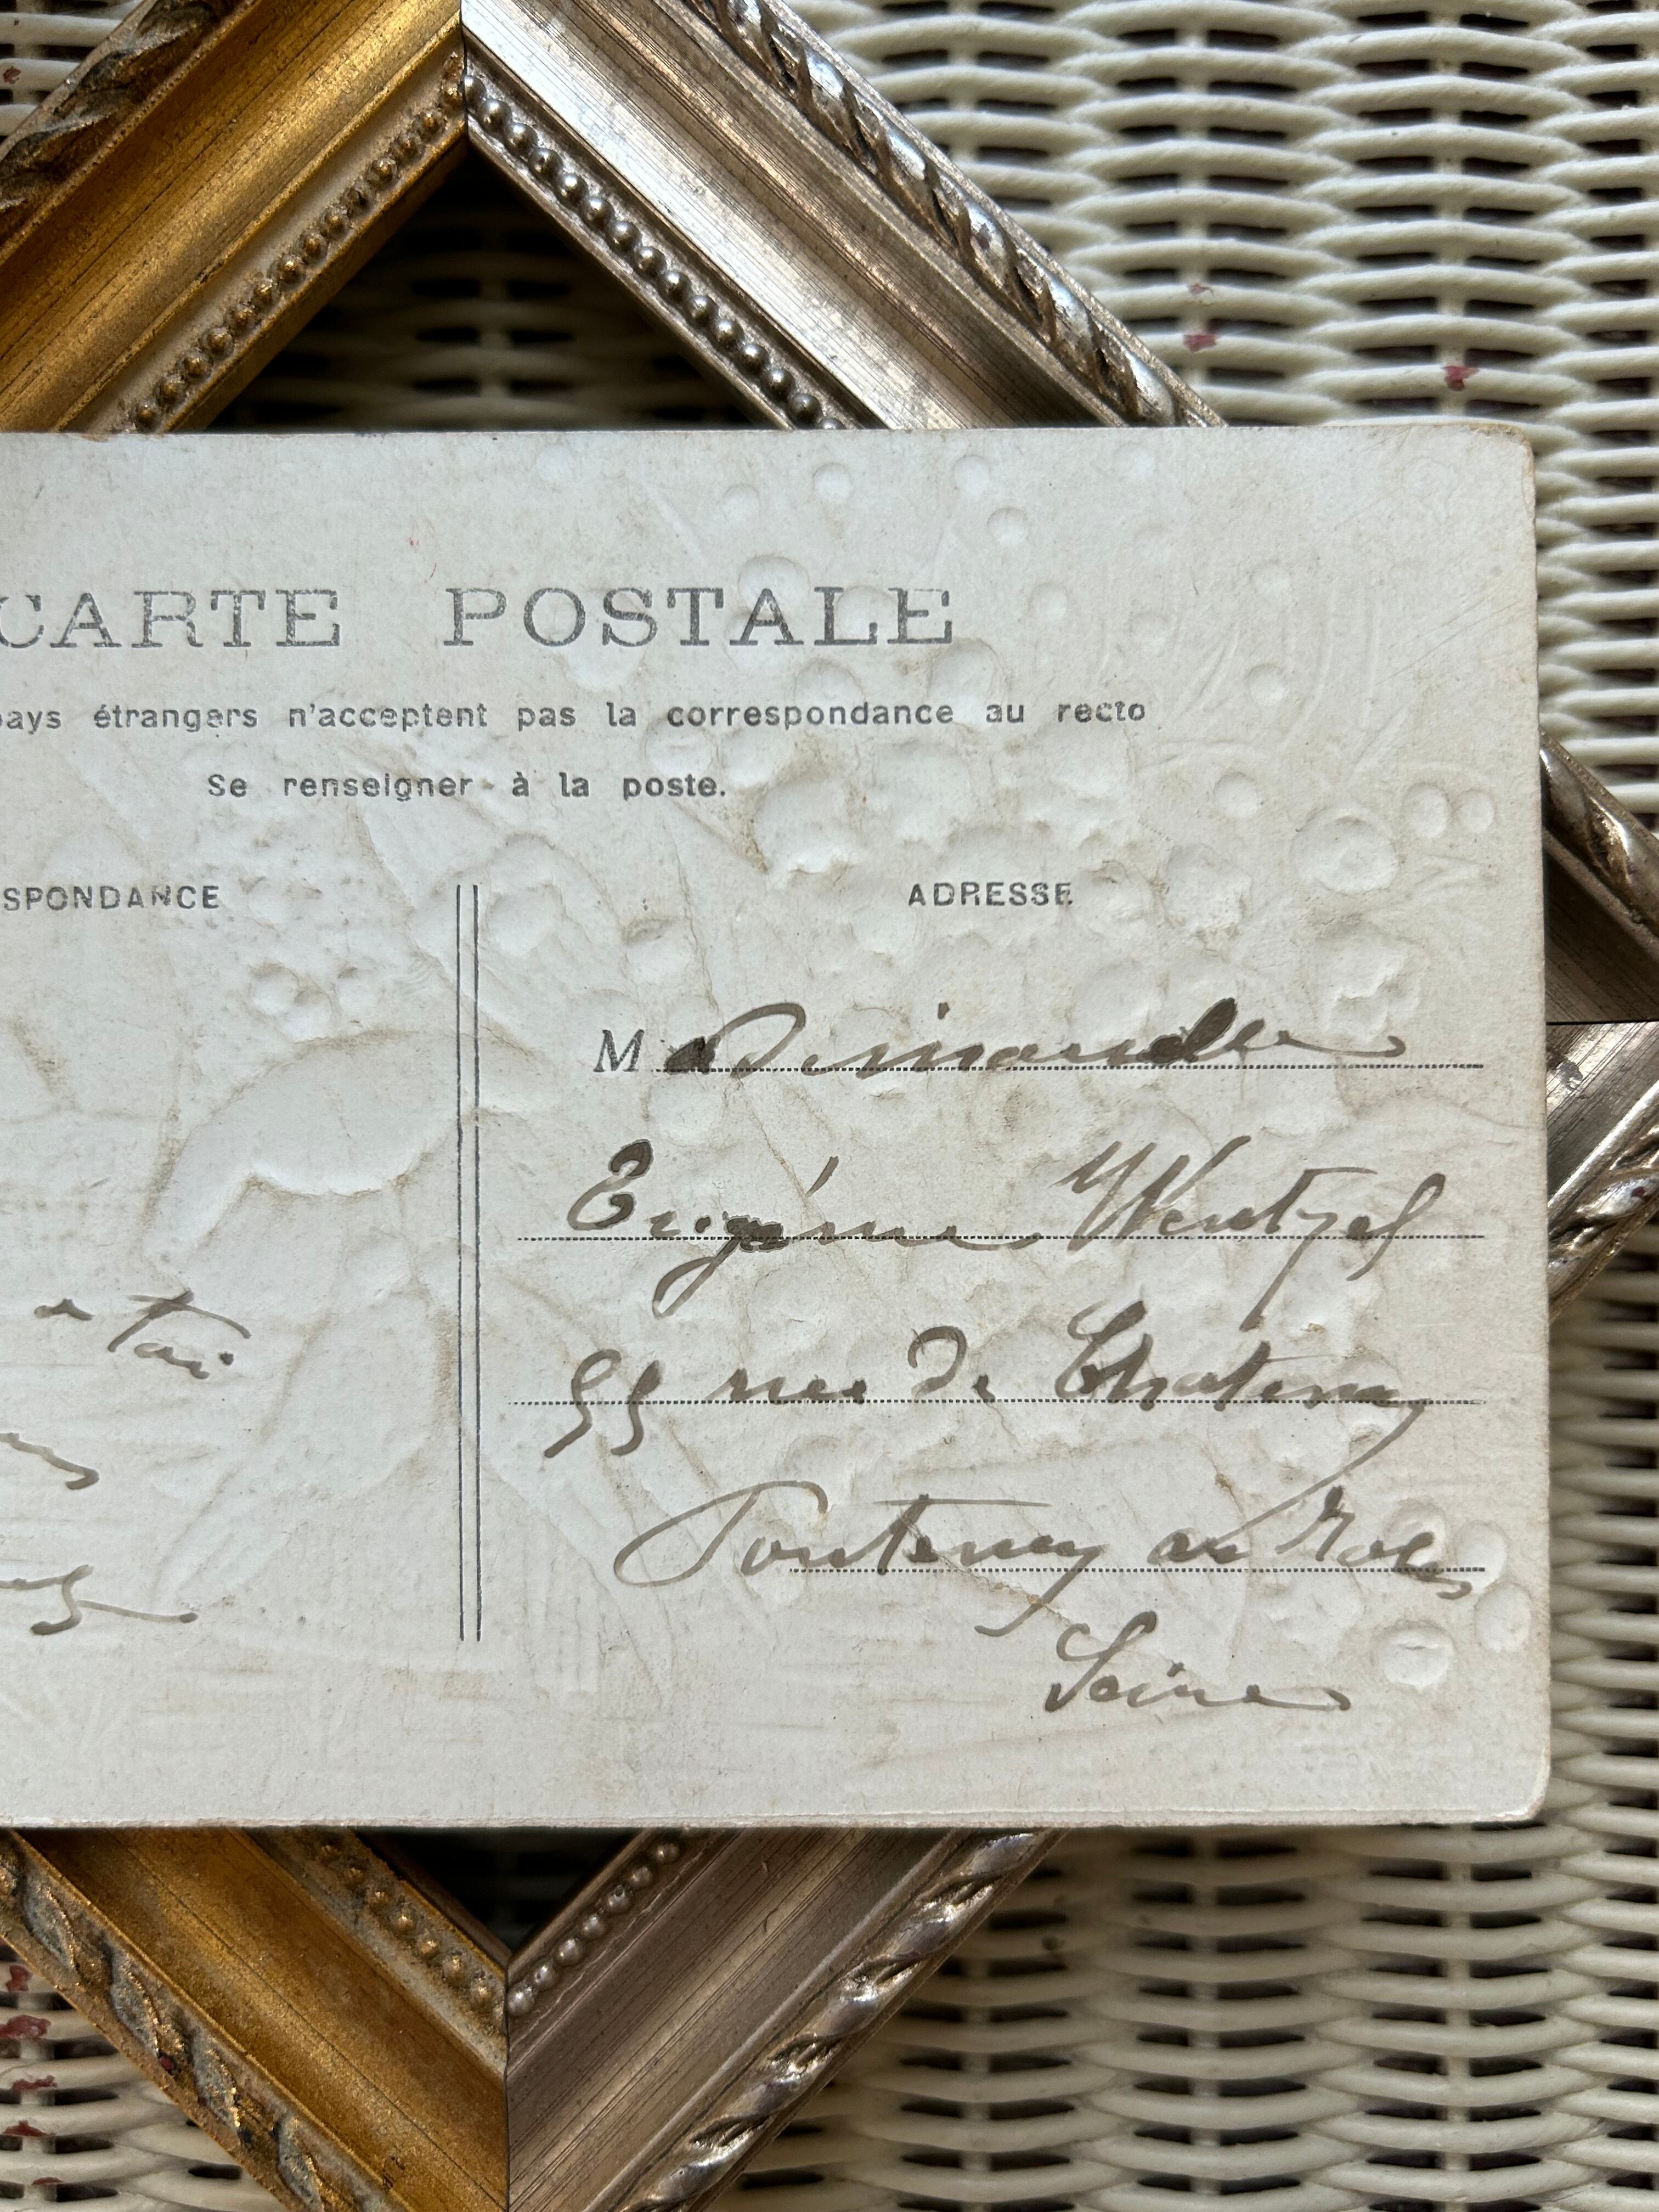 CARTE POSTALE
pays étrangers n'acceptent pas la correspondance au recto
Se renseigner à la poste.
SPONDANCE
ADRESSE
Mademoiselle
Eugénie Wentzel
à toi
55 rue de Chatenay
Fontenay au Roses
Seine